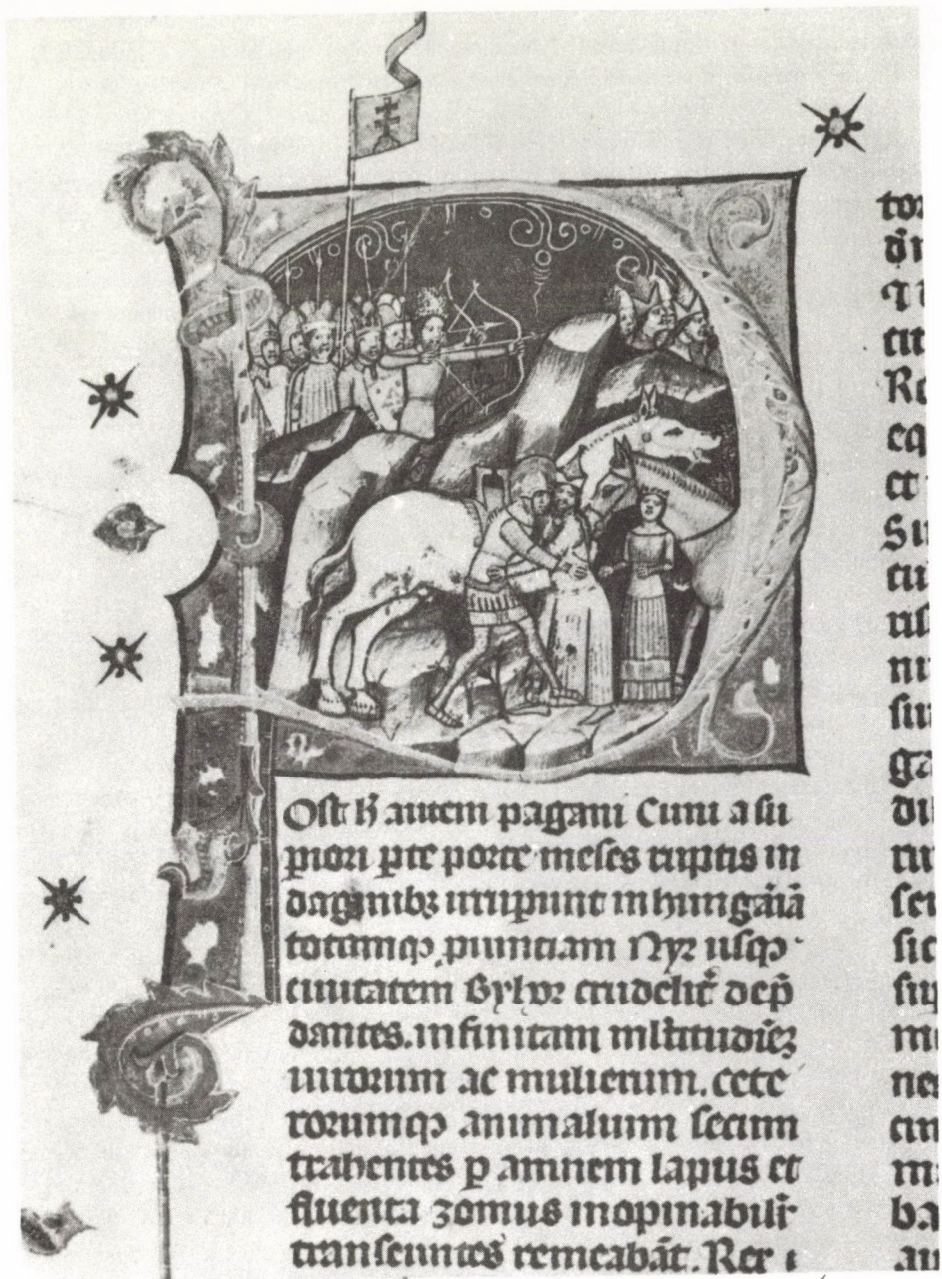 Ost h̄ autem pagani Cuni a su
piori pte porte meses ruptis in
daginibꝫ irrupunt in hungāiā
totamqꝫ puintiam Nyr usqꝫ
ciuitatem Byhor crudelit̄ dep̄
dantes. infinitam ml̄titudīeꝫ
uirorum ac mulierum. cete
rorumqꝫ animalium secum
trahentes p amnem lapus et
fluenta zomus inopinabilit̄
transeuntes remeabāt. Rex
tor
tit
Re
eq
et
Su
cu
ris
ni
sin
gr
di
ru
ser
sic
sup
m
ner
cin
m
ba
au